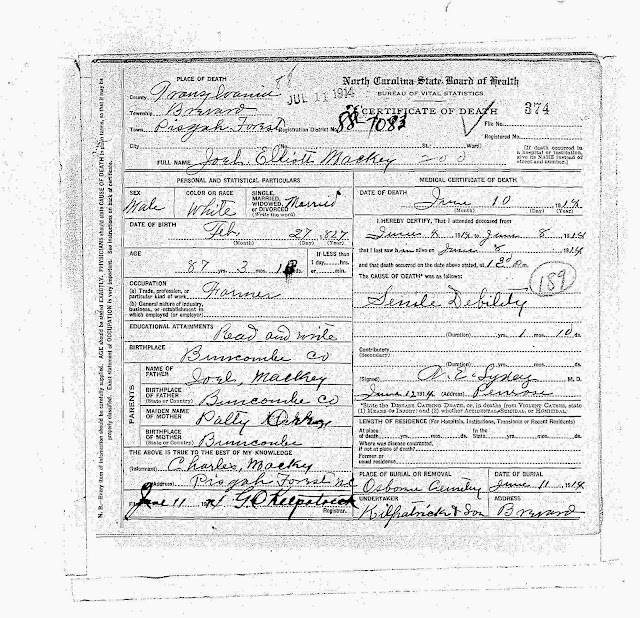 PLACE OF DEATH
North Carolina State Board of Health
BUREAU OF VITAL STATISTICS
CERTIFICATE OF DEATH 374
JUL 11 1914
County Transylvania
Township Brevard
Town Pisgah Forest Registration District No. 88-7083 File No.
Registered No.
City No. St.: Ward)
[If death occurred in a hospital or institution, give its NAME instead of street and number.]
FULL NAME Joel Elliott Mackey
PERSONAL AND STATISTICAL PARTICULARS
SEX
Male
COLOR OR RACE
White
SINGLE, MARRIED, WIDOWED, OR DIVORCED (Write the word)
Married
DATE OF BIRTH
Feb 27 1827
(Month) (Day) (Year)
AGE
87 yrs. 3 mos. ds.
If LESS than 1 day, hrs. or min.
OCCUPATION
(a) Trade, profession, or particular kind of work Farmer
(b) General nature of industry, business, or establishment in which employed (or employer)
EDUCATIONAL ATTAINMENTS
Read and write
BIRTHPLACE
(State or Country)
Buncombe Co
PARENTS
NAME OF FATHER
Joel, Mackey
BIRTHPLACE OF FATHER
(State or Country)
Buncombe Co
MAIDEN NAME OF MOTHER
Patty
BIRTHPLACE OF MOTHER
(State or Country)
Buncombe
THE ABOVE IS TRUE TO THE BEST OF MY KNOWLEDGE
(Informant) Charles, Macky
(Address) Pisgah Forest N.C.
June 11 1914 G.O. Kilpatrick
Registrar.
MEDICAL CERTIFICATE OF DEATH
DATE OF DEATH
June 10 1914
(Month) (Day) (Year)
I HEREBY CERTIFY, That I attended deceased from
June 1914 to June 8 1914
that I last saw alive on June 8 1914
and that death occurred on the date above stated, at m.
The CAUSE OF DEATH* was as follows:
189
Senile Debility
(Duration) yrs. 1 mos. 10 ds.
Contributory
(Secondary)
(Duration) yrs. mos. ds.
(Signed) M. D.
June 1914 (Address) Penrose
*State the DISEASE CAUSING DEATH, or, in deaths from VIOLENT CAUSES, state (1) MEANS OF INJURY; and (2) whether ACCIDENTAL, SUICIDAL, or HOMICIDAL.
LENGTH OF RESIDENCE (For Hospitals, Institutions, Transients or Recent Residents)
At place of death yrs. mos. ds. In the State yrs. mos. ds.
Where was disease contracted, if not at place of death?
Former or usual residence
PLACE OF BURIAL OR REMOVAL
Osborne
DATE OF BURIAL
June 11 1914
UNDERTAKER
Kilpatrick & Son
ADDRESS
Brevard